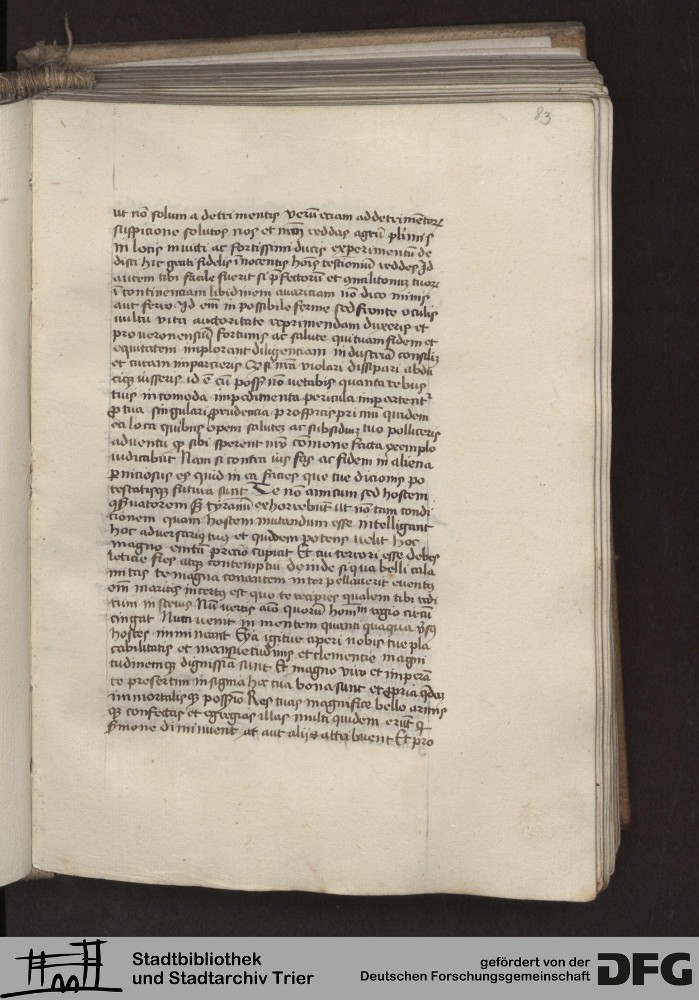 83
ut nō solum a detrimentis verū eciam ad detrimētorꝝ
suspicione solutos nos et nr̄ā reddas agrū plimis
in locis invicti ac fortissimi ducis experimentū de
disti hic grati fidelis inocentis hoīs testioniū reddes Id
autem tibi facile fuerit si p̄fectorū et militum tuorꝝ
īcontinenciam libidinem avariciam nō dico nimis
aut ferro Id em̄ impossibile ferme sed fronte oculis
vultu vita auctoritate reprimendam duxeris et
pro veronensiū fortunis ac salute qui tuam fidem et
equitatem implorant diligenciam industriā consiliū
et curam imparcieris Qd si nr̄ā violari dissipari abdu
ciqꝫ iusseris id ē cū possꝫ nō vetabis quanta rebus
tuis incomoda impedimenta pericula importent
ꝓ tua singulari prudencia prospicis primū quidem
ea loca quibus opem salutem ac subsidiū tuo polliceris
adventu qꝫ sibi sperent nr̄o comone facta exemplo
iudicabūt Nam si contra ius fas ac fidem in aliena
ꝑniciosus es quid in ea facies que tue dicionis po
testatisqꝫ futura sunt Te nō amicum sed hostem
ꝯservatorem sꝫ tyrannū exhorrebūt ut nō tam condi
cionem quam hostem mutandum esse intelligant
hoc adversariꝰ tuꝰ et quidem potens velit hoc
magno emtū precio cupiat Et cui terrori esse debes
leticie fies atqꝫ contemptui deinde si qua belli cala
mitas te magna conantem interpellaverit eventꝰ
om̄ martis incertꝰ est quo te recipies qualem tibi redi
tum instruis Nū vertis aīo quorū hoīm regio circū
cingat Num venit in mentem quanti quaqua vsqꝫ
hostes immineant Eya igitur aperi nobis tue pla
cabilitatis et mansuetudinis et clemencie magni
tudinemqꝫ dignissīa sunt Et magno viro et imperā
te presertim insignia hec tua bona sunt et ꝓpria qꝫdem
immortalisqꝫ possessio Res tuas magnifice bello armis
qꝫ confectas et egregias illas multi quidem erūt qͥ
sermone diminuent at aut alijs attribuent Et pro
Stadtbibliothek
und Stadtarchiv Trier
gefördert von der
Deutschen Forschungsgemeinschaft
DFG